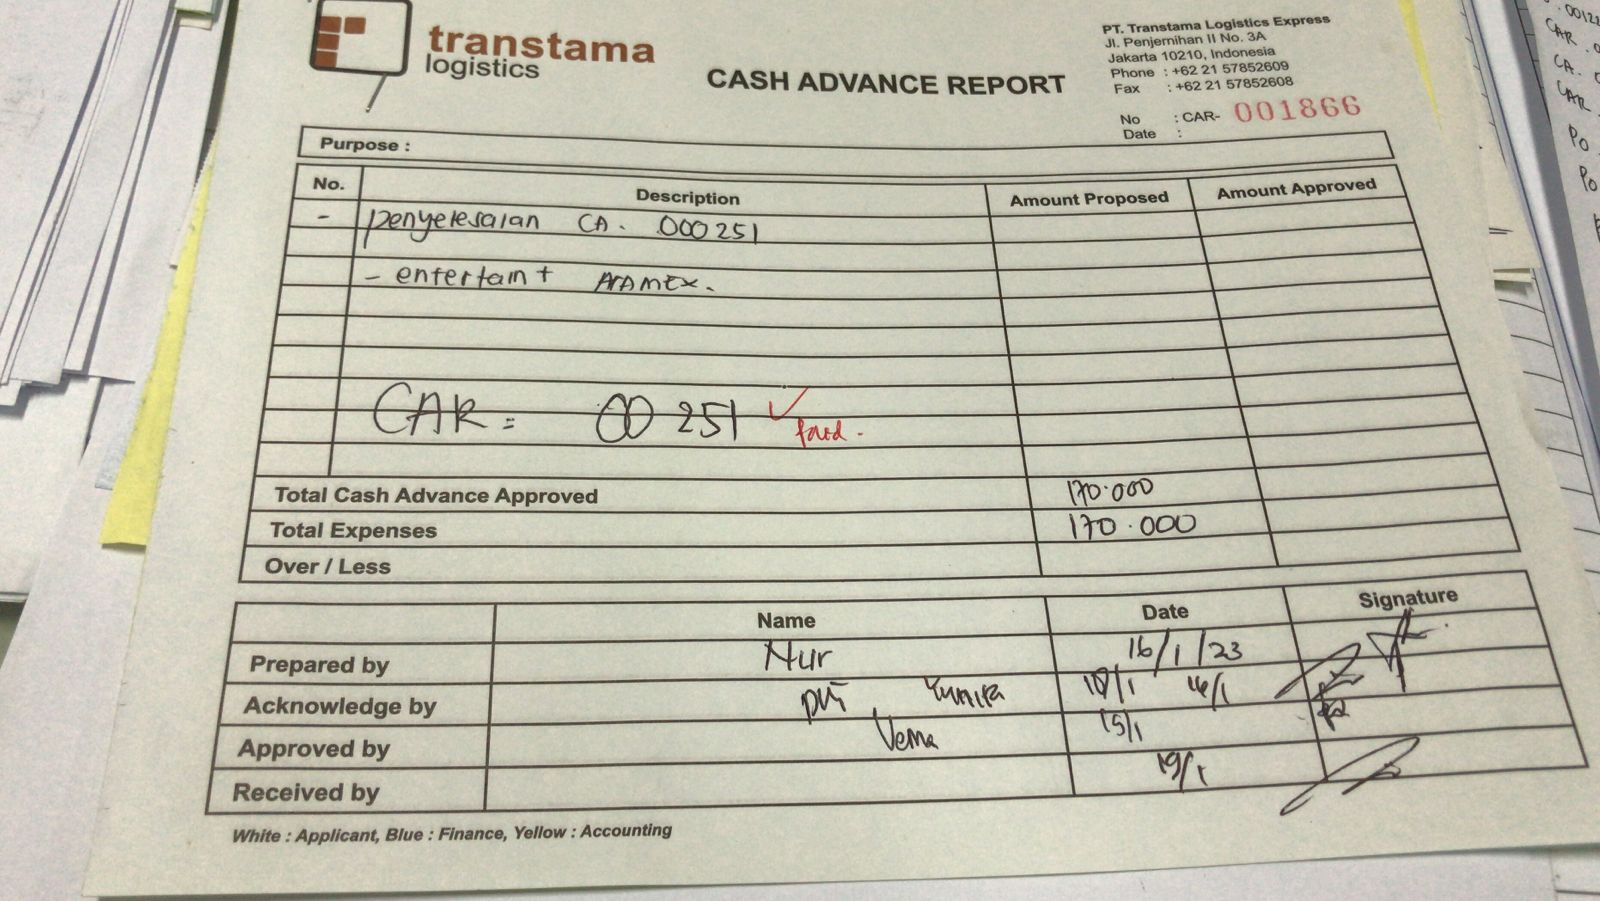 transtama
logistics
CASH ADVANCE REPORT
PT. Transtama Logistics Express
Jl. Penjernihan II No. 3A
Jakarta 10210, Indonesia
Phone : +62 21 57852609
Fax : +62 21 57852608
No : CAR- 001866
Date :
Purpose :
No. Description Amount Proposed Amount Approved
- penyelesaian CA. 000251
- entertaint ARAMEX.
CAR = 00 251
Total Cash Advance Approved 170.000
Total Expenses 170.000
Over / Less
Name Date Signature
Prepared by Nur 16/1/23
Acknowledge by Yunita 16/1
Approved by
Received by 19/1
White : Applicant, Blue : Finance, Yellow : Accounting
CAR
CA.
CAR
PO
PO